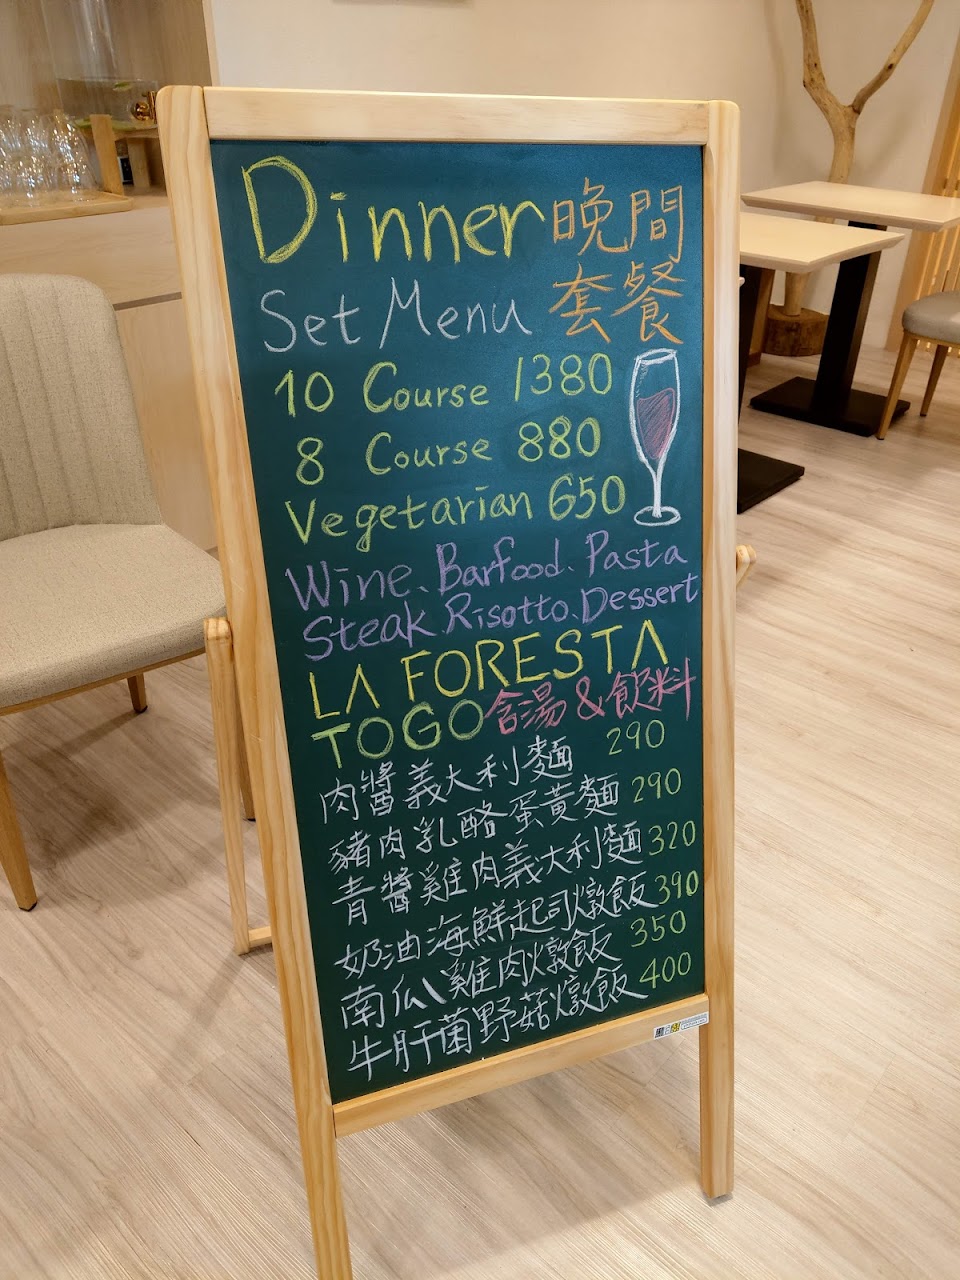 Dinner 晚間
Set Menu 套餐
10 Course 1380
8 Course 880
Vegetarian 650
Wine、Barfood、Pasta
Steak、Risotto、Dessert
LA FORESTA
TOGO 含湯 & 飲料
肉醬義大利麵 290
豬肉乳酪蛋黃麵 290
青醬雞肉義大利麵 320
奶油海鮮起司燉飯 390
南瓜雞肉燉飯 350
牛肝菌野菇燉飯 400